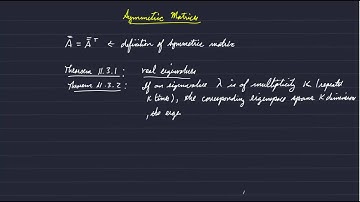 Symmetric Matrices
Ā = Āᵀ ← definition of symmetric matrix
Theorem 11.3.1: real eigenvalues
Theorem 11.3.2: If an eigenvalue λ is of multiplicity K (repeats
K times), the corresponding eigenspace spans K dimension
, its eige